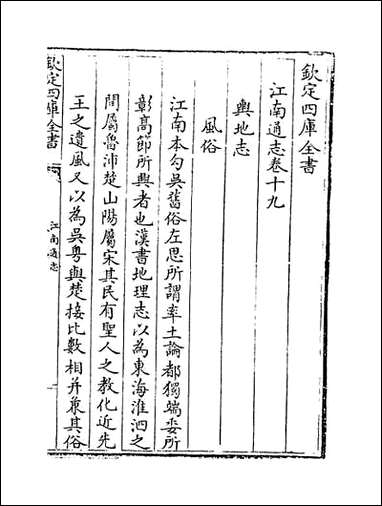 欽定四庫全書
江南通志卷十九
輿地志
風俗
江南本勾吳舊俗左思所謂率土論都獨端委所
彰高節所興者也漢書地理志以為東海淮泗之
間屬魯沛楚山陽屬宋其民有聖人之教化近先
王之遺風又以為吳粵與楚接比數相并兼其俗
欽定四庫全書
江南通志
一